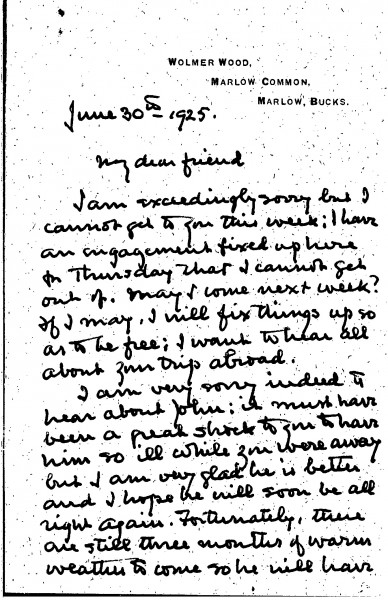 WOLMER WOOD,
MARLOW COMMON,
MARLOW, BUCKS.
June 30th 1925.
My dear friend
I am exceedingly sorry but I
cannot get to you this week; I have
an engagement fixed up here
for Thursday that I cannot get
out of. May I come next week?
If I may, I will fix things up so
as to be free; I want to hear all
about your trip abroad.
I am very sorry indeed to
hear about John; it must have
been a great shock to you to have
him so ill while you were away
but I am very glad he is better
and I hope he will soon be all
right again. Fortunately, there
are still three months of warm
weather to come so he will have